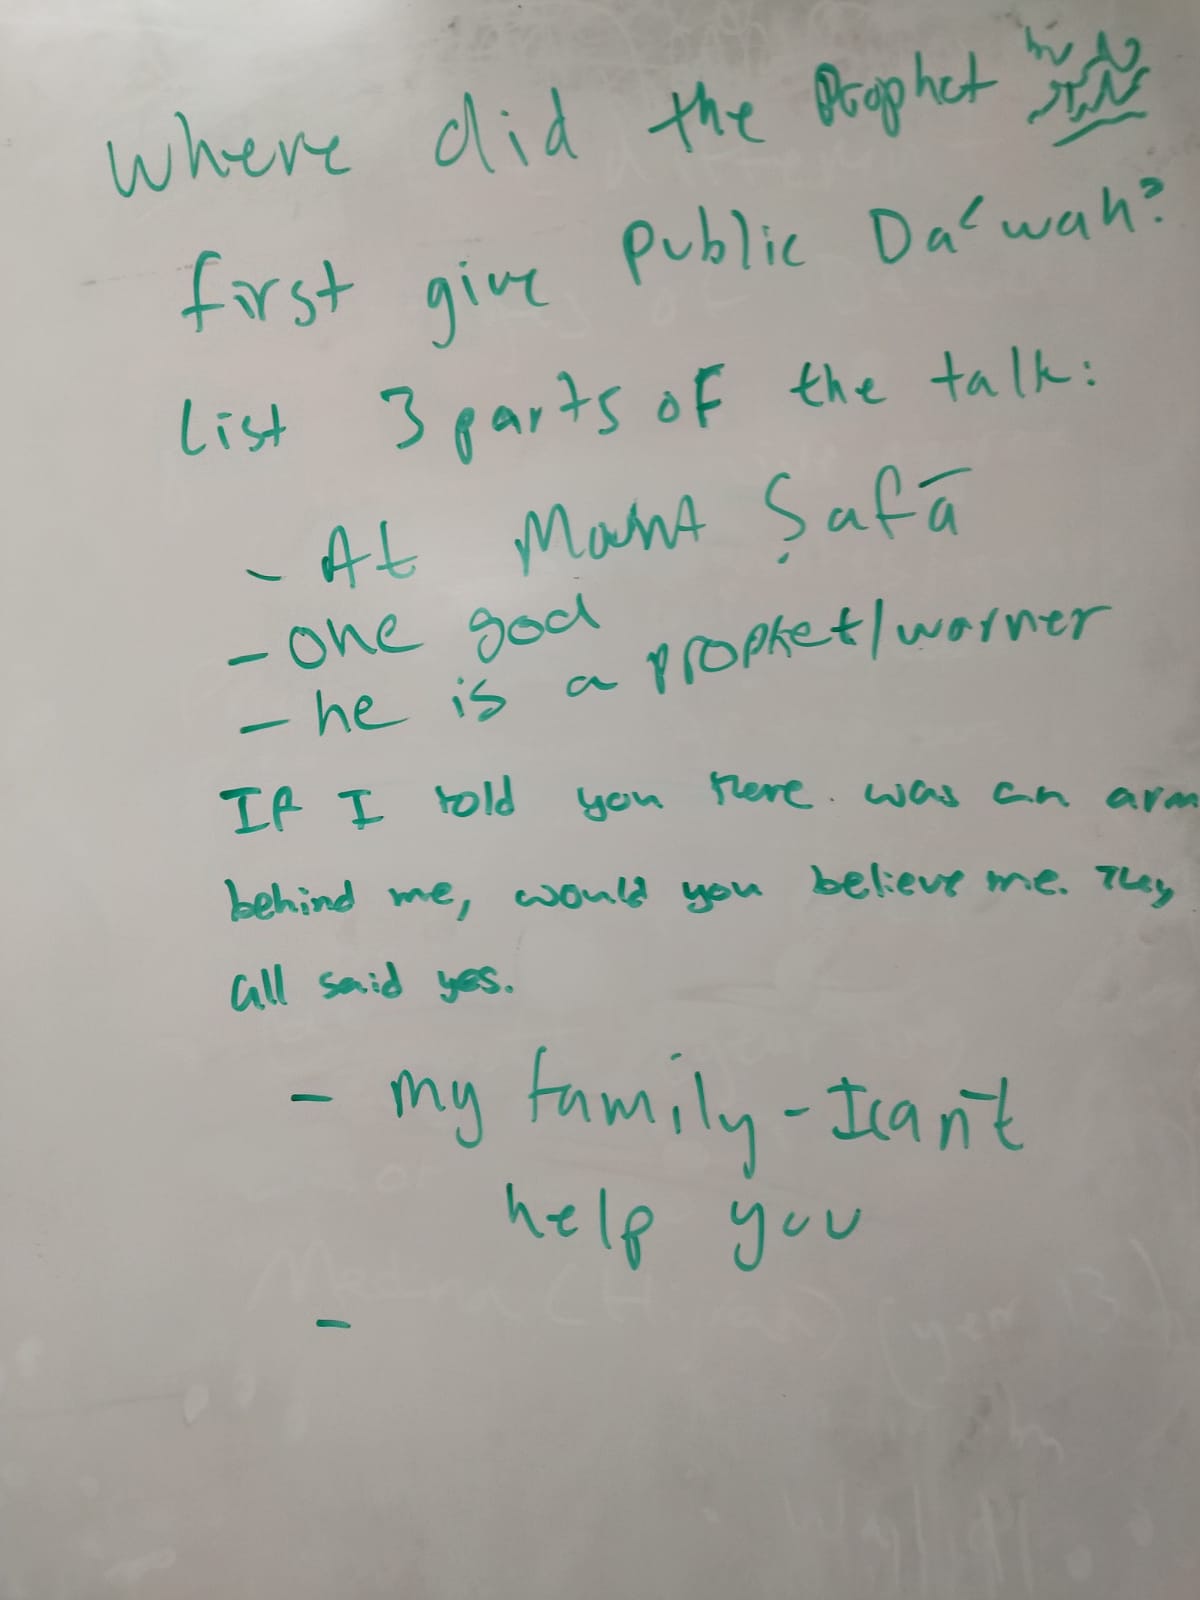 Where did the Prophet
first give public Da'wah?
List 3 parts of the talk:
- At Mount Ṣafā
- one god
- he is a prophet/warner
If I told you there was an arm
behind me, would you believe me. They
all said yes.
- my family - I can't
help you
-